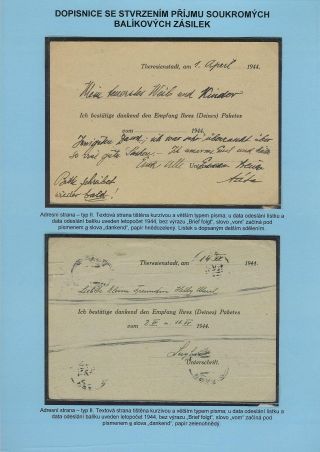 DOPISNICE SE STVRZENÍM PŘÍJMU SOUKROMÝCH
BALÍKOVÝCH ZÁSILEK
Theresienstadt, am 1. April 1944.
Mein teuerstes Weib und Kinder
Ich bestätige dankend den Empfang Ihres (Deines) Paketes
vom 1944.
Innigsten Dank, ich war sehr über
so viel gute Ich umarme Dich und
Euch Alle
Bitte schreibet
wieder bald!
Adresní strana – typ II. Textová strana tištěna kurzívou a větším typem písma; u data odeslání lístku a
data odeslání balíku uveden letopočet 1944, bez výrazu „Brief folgt“, slovo „vom“ začíná pod
písmenem a slova „dankend“, papír hnědozelený. Lístek s dopsaným delším sdělením.
Theresienstadt, am 1944.
Liebe
Ich bestätige dankend den Empfang Ihres (Deines) Paketes
vom 1944.
Unterschrift.
Adresní strana – typ II. Textová strana tištěna kurzívou a větším typem písma; u data odeslání lístku a
data odeslání balíku uveden letopočet 1944, bez výrazu „Brief folgt“, slovo „vom“ začíná pod
písmenem a slova „dankend“, papír zelenohnědý.